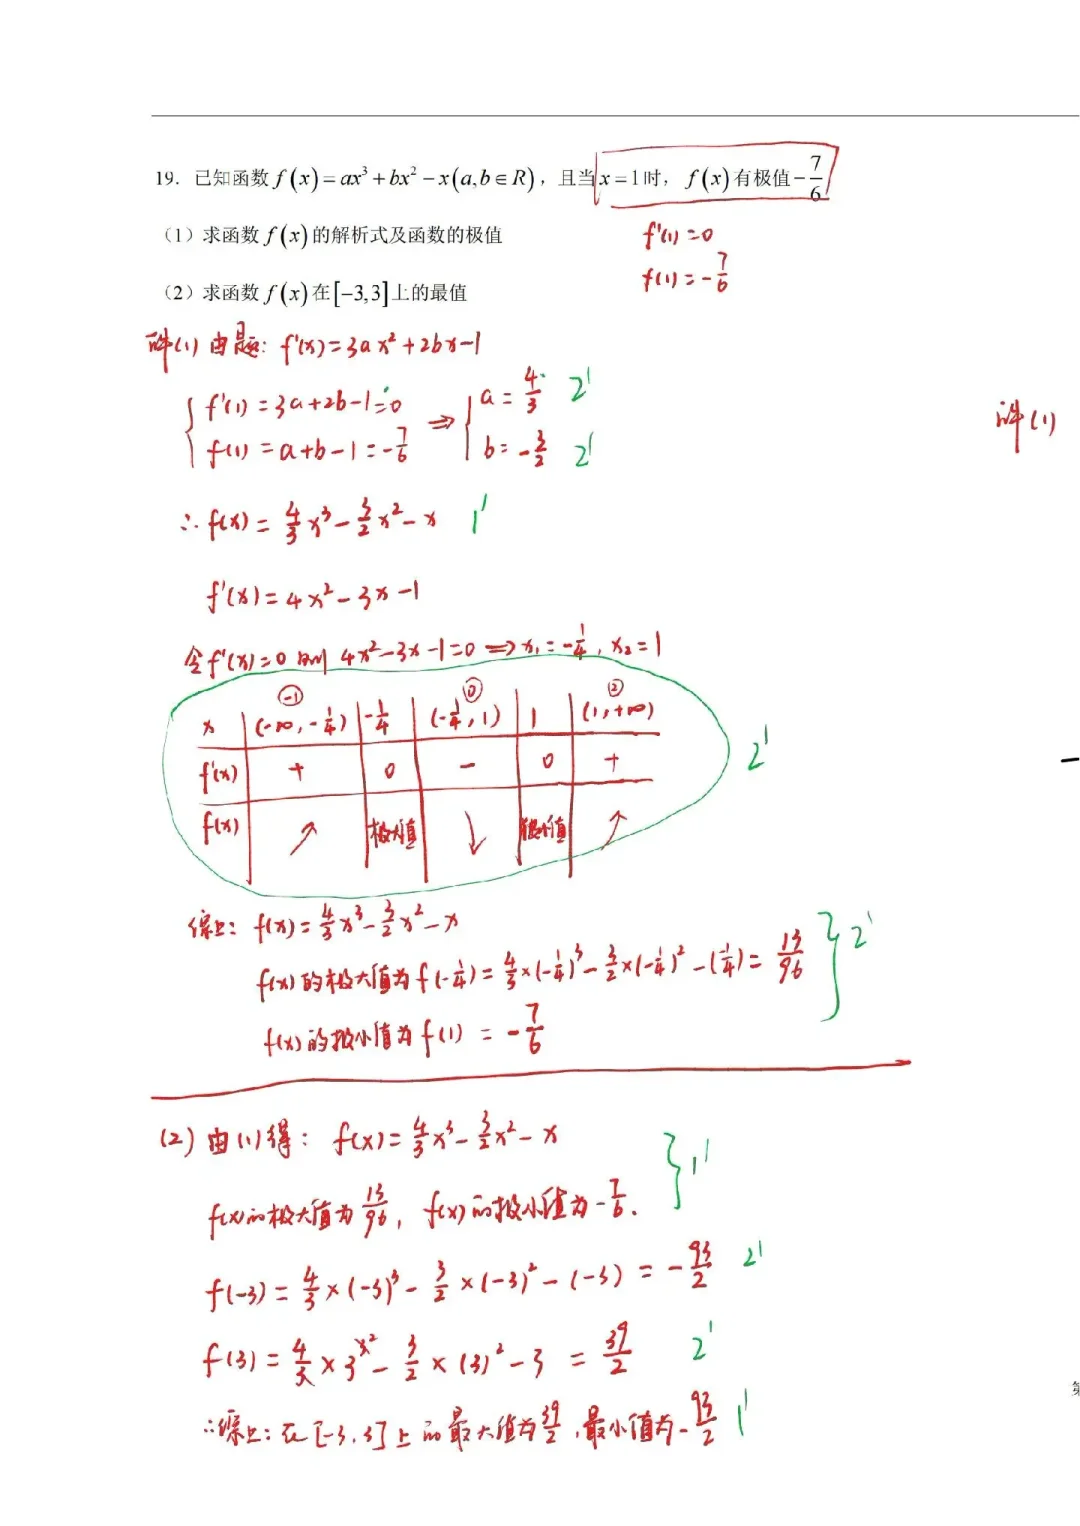 19. 已知函数 f(x)=ax³+bx²−x(a,b∈R)，且当x=1时，f(x)有极值−7/6
（1）求函数 f(x)的解析式及函数的极值
f'(1)=0
f(1)=−7/6
（2）求函数 f(x)在[−3,3]上的最值
解(1) 由题: f'(x)=3ax²+2bx−1
{ f'(1)=3a+2b−1=0 ⇒ { a=4/3 2'
f(1)=a+b−1=−7/6 b=−3/2 2'
解(1)
∴ f(x)=4/3x³−3/2x²−x 1'
f'(x)=4x²−3x−1
令f'(x)=0 则 4x²−3x−1=0 ⇒ x₁=−1/4, x₂=1
-1 0 2
x (−∞,−1/4) −1/4 (−1/4,1) 1 (1,+∞)
f'(x) + 0 − 0 + 2'
f(x) ↗ 极大值 ↓ 极小值 ↗
综上: f(x)=4/3x³−3/2x²−x
f(x)的极大值为f(−1/4)=4/3×(−1/4)³−3/2×(−1/4)²−(−1/4)=13/96 } 2'
f(x)的极小值为f(1)=−7/6
(2) 由(1)得: f(x)=4/3x³−3/2x²−x } 1'
f(x)的极大值为13/96, f(x)的极小值为−7/6.
f(−3)=4/3×(−3)³−3/2×(−3)²−(−3)=−93/2 2'
f(3)=4/3×3³−3/2×(3)²−3=39/2 2'
∴综上: 在[−3,3]上的最大值为39/2,最小值为−93/2 1'
第